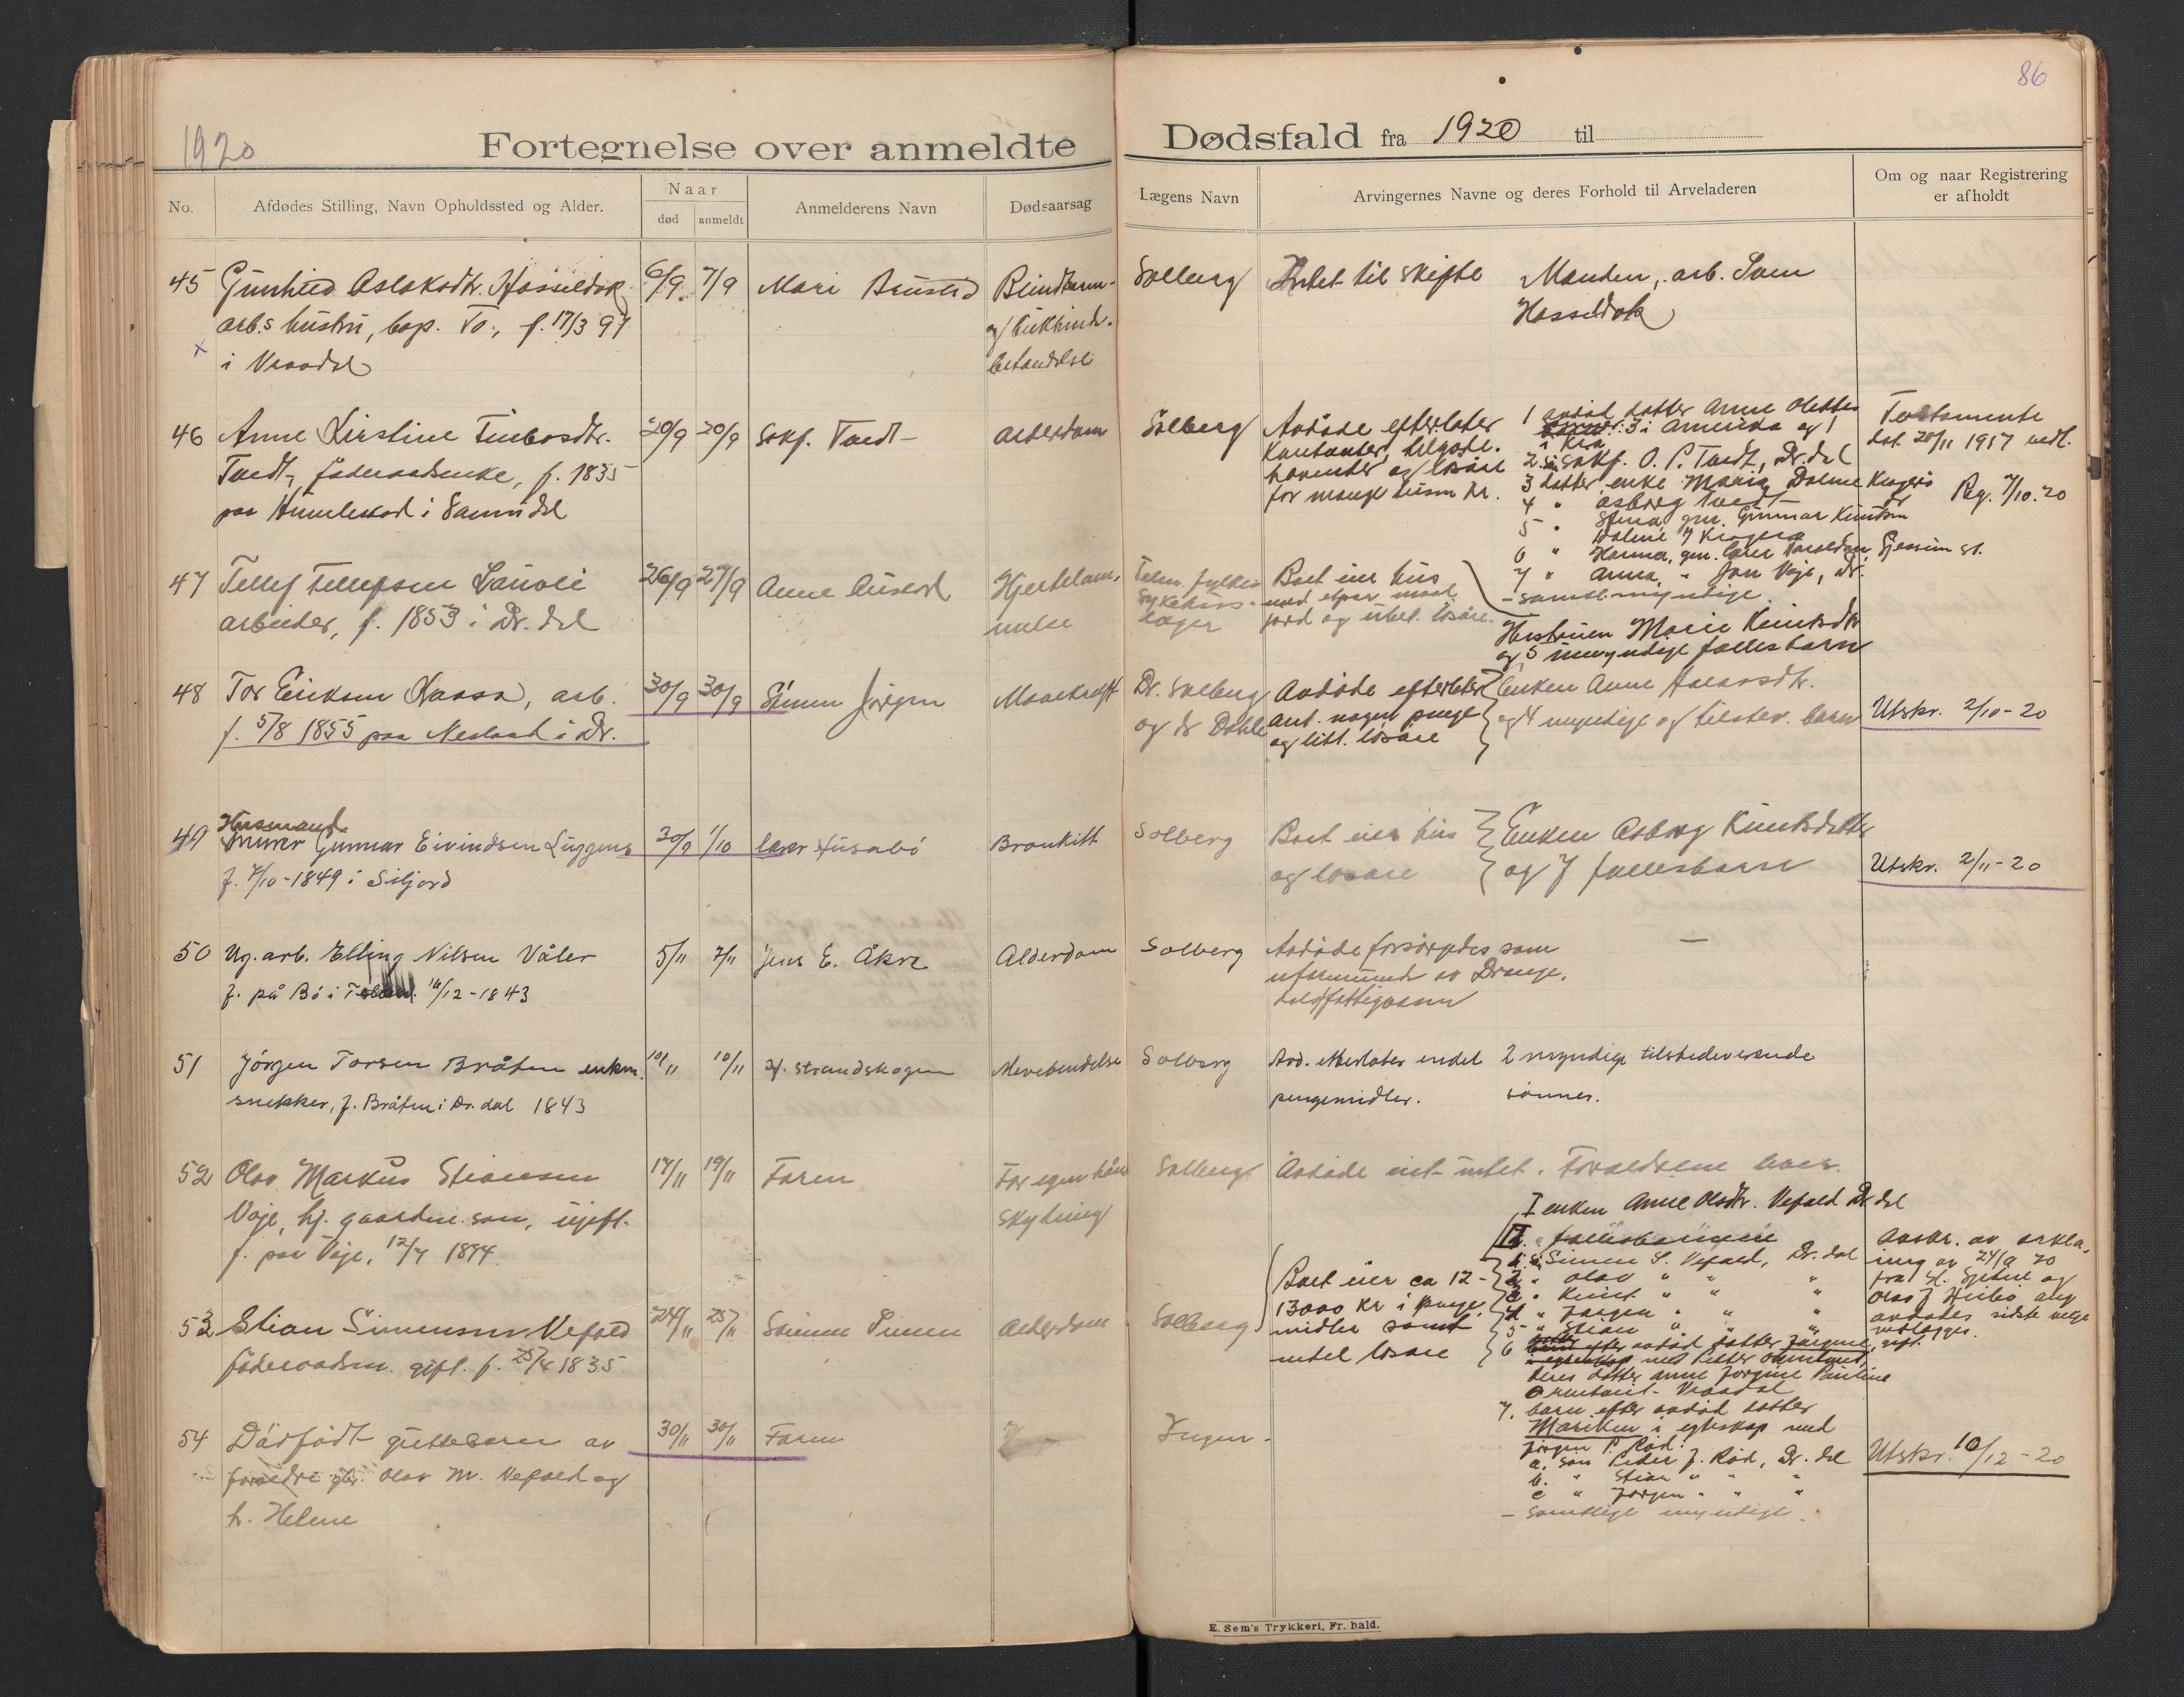 1920
86
Fortegnelse over anmeldte
Dødsfald fra 1920 til
No.
Afdødes Stilling, Navn Opholdssted og Alder.
Naar
død
anmeldt
Anmelderens Navn
Dødsaarsag
Lægens Navn
Arvingernes Navne og deres Forhold til Arveladeren
Om og naar Registrering
er afholdt
45 Gunhild Aslaksdtr. 6/9 7/9 Mari Solberg Intet til skifte Manden, arb. Sven
arb.s hustru, bop. To., f. 17/3 97
x i Vraadal
46 Anne Kirstine 20/9 20/9 Sakf. Tvedt Alderdom Solberg Avdøde efterlater 1 avdød datter Anne Olettes Testamente
3 i Amerika og 1
i Kra. dat. 20/11 1917 vedl.
2 Sakf. O. P. Tvedt, Dr.dal
for mange tusen kr. 3 datter, enke Maria Dalene Kragerø
Tvedt, føderaadsenke, f. 1835
4 " Asborg Tvedt Dr Reg. 7/10.20
paa i
5 " gm. Gunnar Knutsen
Kragerø
6 " Hanna, gm. lærer
7 " Anna, " Jon Voje, Dr.
- samtl. myndige
47 Tellef Tellefsen 26/9 27/9 Anne Telem. fylkes Boet eier hus
arbeider, f. 1853 i Dr. dal sykehus- med etpar maal
læger jord og ubet. løsøre.
Hustruen Marie Knutsdtr
og 5 umyndige fællesbarn
48 Tor Eriksen Naasa, arb. 30/9 30/9 Simen Jørgen Mavekræft Dr. Solberg Avdøde efterlater enken Anne
f. 5/8 1855 paa Neslast i Dr. og dr Dahle ant. nogen penge og 4 myndige og tilstev. barn Utskr. 2/10-20
og litt. løsøre
49 Husmand
murer Gunnar Eivindsen Luggens 30/9 1/10 lærer Husabø Bronkitt Solberg Boet eier hus Enken Asborg Knutsdatter
f. 7/10-1849 i Siljord og løsøre og 7 fællesbarn Utskr. 2/11-20
50 Ug. arb. Elling Nilsen Våler 5/11 7/11 Jens E. Åkre Alderdom Solberg Avdøde forsørgedes som —
f. på Bø i 16/12-1843 av Drange-
dals fattigvæsen
51 Jörgen Torsen Bråten enkm. 10/11 10/11 H. Strandskogen Solberg Avd. efterlater endel 2 myndige tilstedeværende
snekker, f. Bråten i Dr. dal 1843 pengemidler. sønner.
52 Olav Markus Stiansen 17/11 19/11 Faren For egen hånd Solberg Avdøde eiet intet. Forældrene lever.
Voje, hj. gaardm. søn, ugift. Skytning
f. paa Voje, 12/7 1894
I enken Anne Olsdtr. Vefald Dr. dal
II. fællesbarnene
1. S. Simen S. Vefald, Dr. dal
Boet eier ca 12- 2 " Olav " " "
13000 kr i penge- 3 " Knut " " "
midler samt 4 " Jørgen " " "
endel løsøre 5 " Stian " " "
Avskr. av erklæ-
ring av 24/9 20
fra H. og
avdødes sidste vilje
vedlægges.
53 Stian Simensen Vefald 24/11 25/11 Simen Alderdom Solberg
føderaadsm. gift. f. 25/4 1835
6 barn efter avdød datter Jørgine, gift.
i egteskap med Peder
deres datter Anne Jorgine Pauline
Vraadal
7. barn efter avdød datter
Mariken i egteskap med
Jørgen P. Rød:
a. søn Peder J. Rød, Dr. dal
b. " Stian " " "
c " Jørgen " " "
- samtlige myndige.
54 Dødfødt guttebarn av 30/11 30/11 Faren Ingen.
forældre gbr. Olav M. Vefald og Utskr. 10/12-20
h. Helene
E. Sem's Trykkeri, Fr. hald.